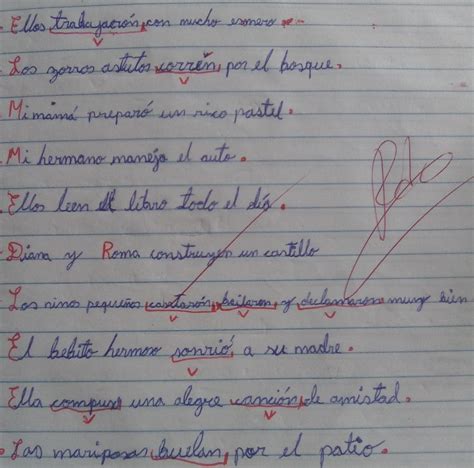 . Ellos trabajarón, con mucho esmero .
Los zorros astutos corrren, por el bosque.
Mi mamá preparó un rico pastel.
Mi hermano maneja el auto.
. Ellos leen el libro todo el día.
Diana y Roma construyen un castillo
Los ninos pequeños cantarón, bailaron, y, declamaron muy bien
El bebito hermoso sonrió, a su madre.
Ella compuso una alegre canción, de amistad.
. Las mariposas buelan, por el patio.